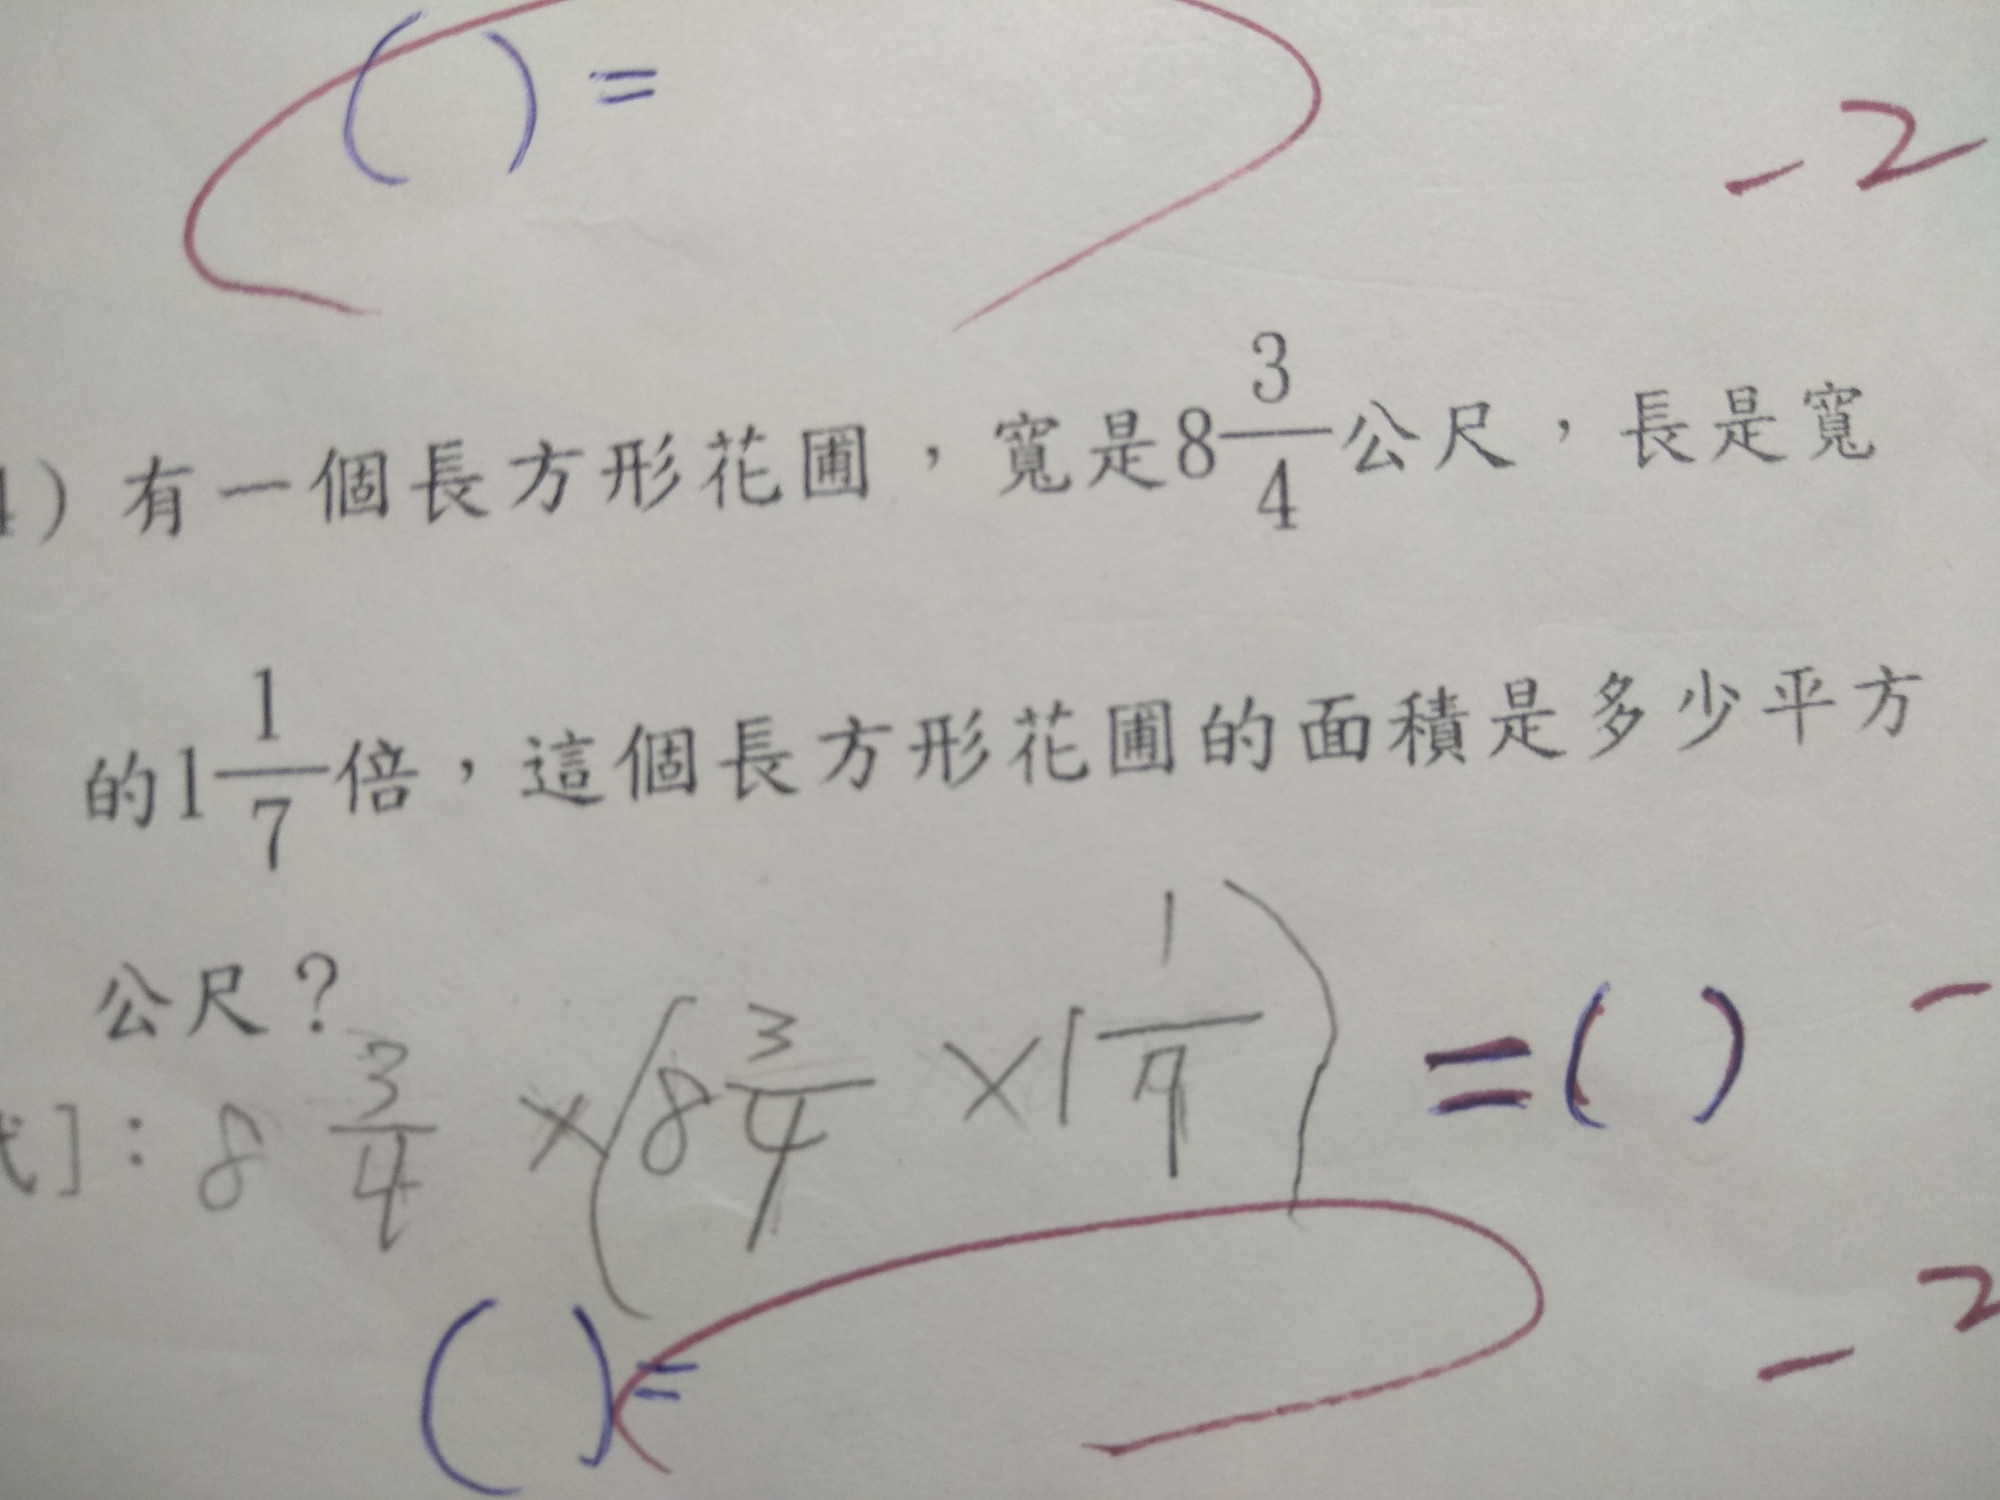 ( ) =
-2
4) 有一個長方形花圃，寬是8 3/4 公尺，長是寬
的1 1/7 倍，這個長方形花圃的面積是多少平方
公尺？
]：8 3/4 ×(8 3/4 ×1 1/7) =( ) -
( )=
-2